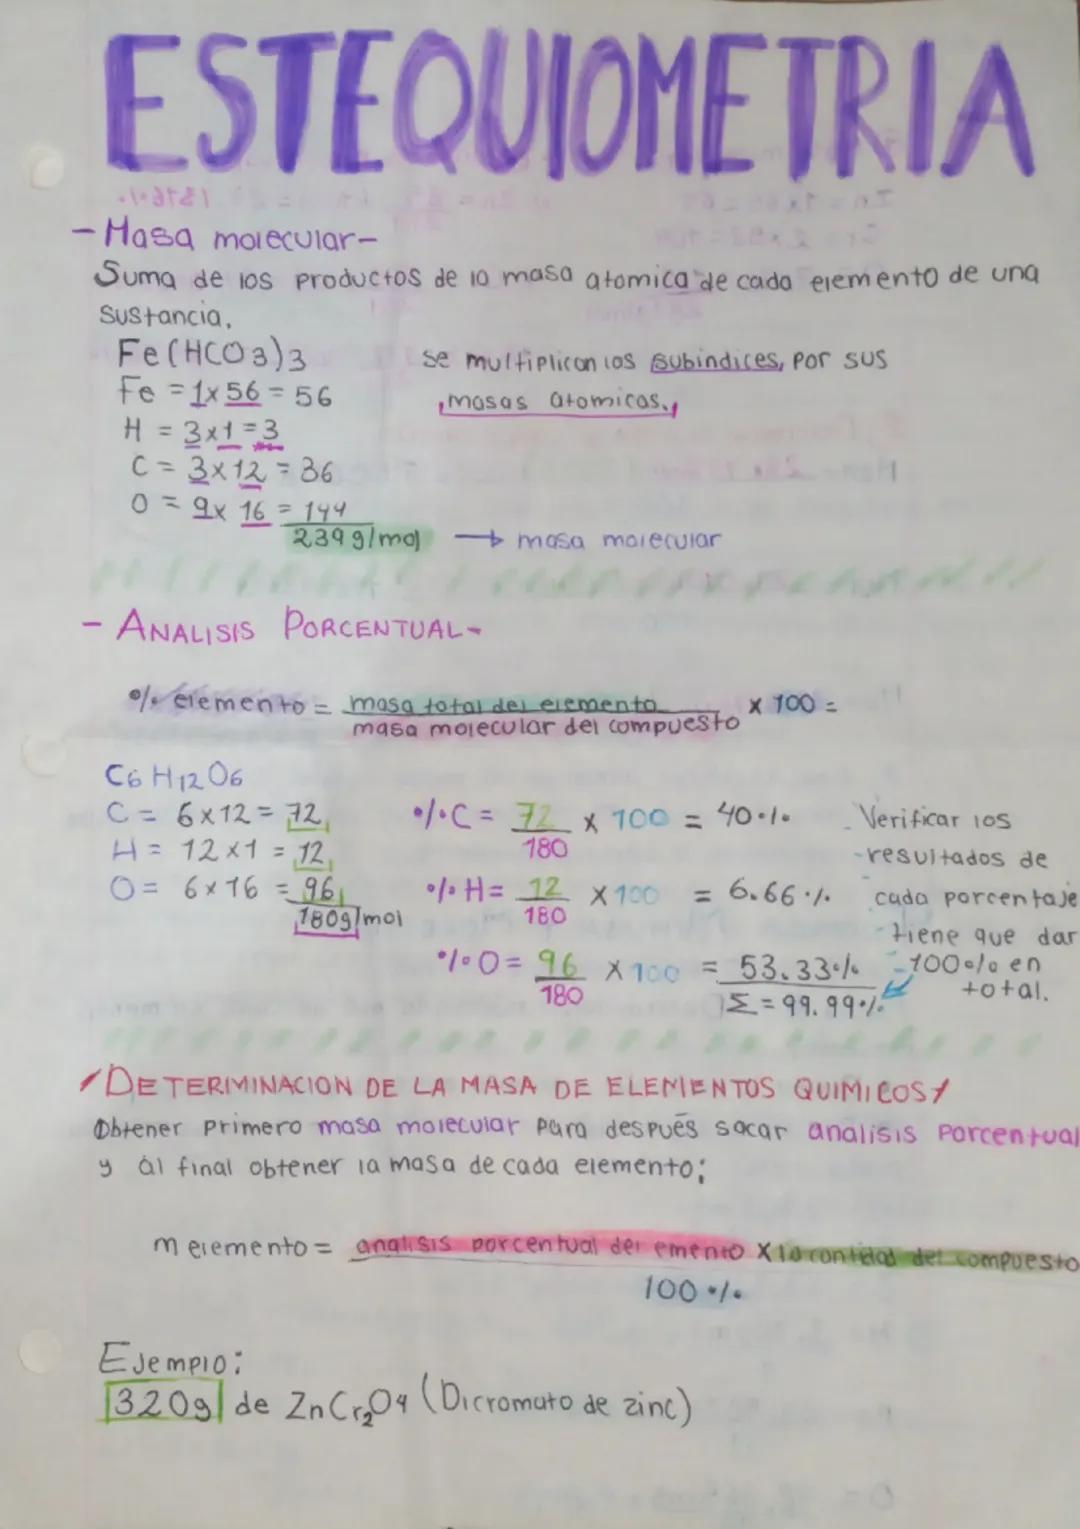 ESTEQUIOMETRIA
- Masa molecular-
Suma de los productos de la masa atomica de cada elemento de una
sustancia.
Fe(HCO3)3
Fe = 1x56 = 56
H = 3x1 = 3
C = 3x12 = 36
O = 9x 16 = 144
239 g/mol → masa molecular
se multiplican los subindices, por sus
masas atomicas.
- ANALISIS PORCENTUAL-
% elemento = masa total del elemento x 100 =
masa molecular del compuesto
C6 H12 O6
C = 6x12 = 72
H = 12x1 = 12
O = 6x16 = 96
180g/mol
%C = 72 x 100 = 40%
180
%H = 12 x100 = 6.66%
180
%O = 96 x100 = 53.33%
180
Σ = 99.99%
Verificar los
resultados de
cada porcentaje
tiene que dar
100% en
total.
DETERMINACION DE LA MASA DE ELEMENTOS QUIMICOS
Obtener primero masa molecular para después sacar analisis Porcentual
y al final obtener la masa de cada elemento:
m elemento = analisis porcentual del emento x la cantidad del compuesto
100%
Ejemplo:
320g de ZnCr2O4 (Dicromato de zinc)